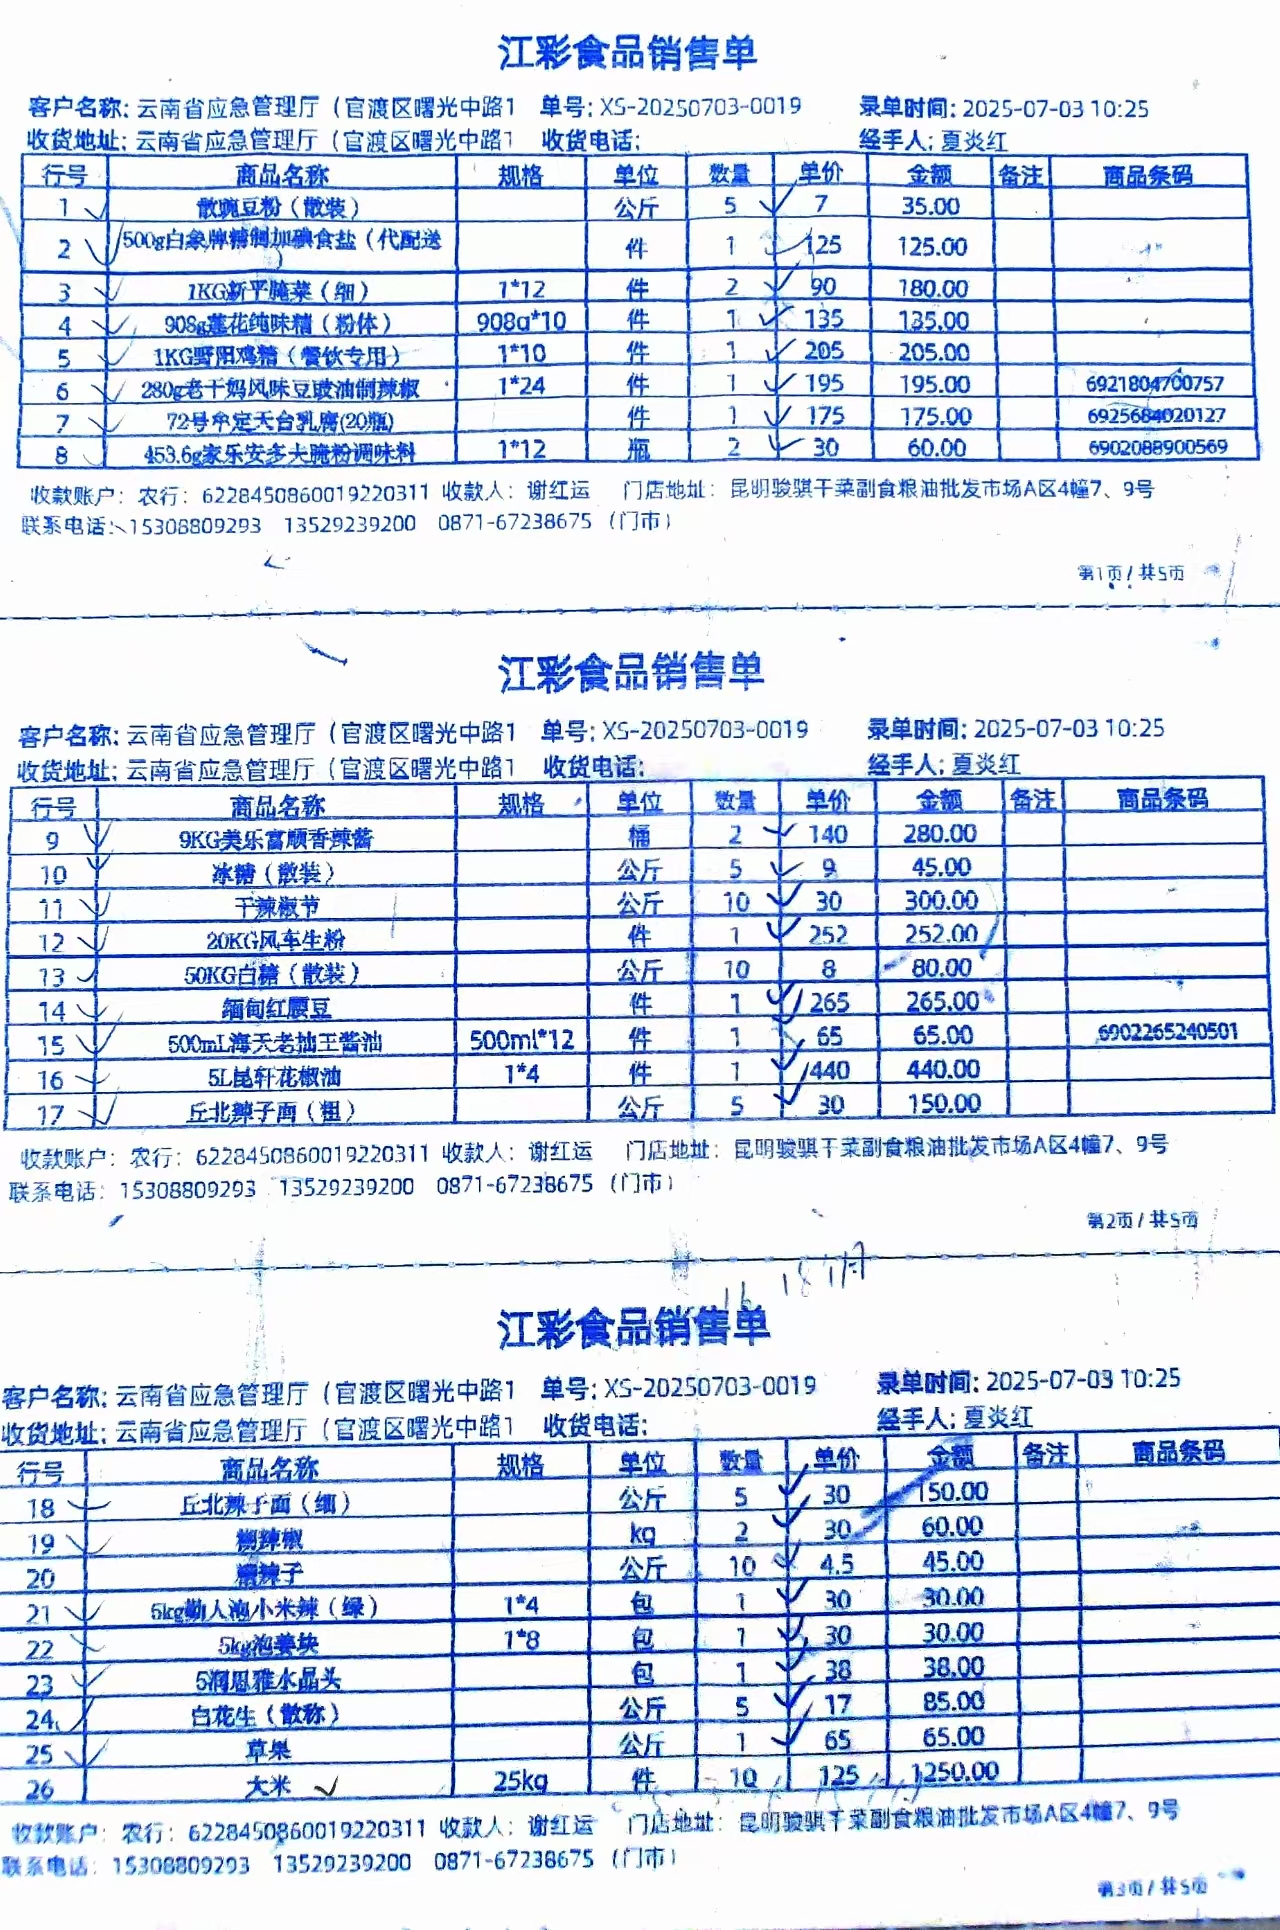 江彩食品销售单
客户名称: 云南省应急管理厅（官渡区曙光中路1 单号: XS-20250703-0019 录单时间: 2025-07-03 10:25
收货地址: 云南省应急管理厅（官渡区曙光中路1 收货电话: 经手人: 夏炎红
行号 商品名称 规格 单位 数量 单价 金额 备注 商品条码
1 散豌豆粉（散装） 公斤 5 7 35.00
2 500g白象牌精制加碘食盐（代配送 件 1 125 125.00
3 1KG新平腌菜（细） 1*12 件 2 90 180.00
4 908g莲花纯味精（粉体） 908g*10 件 1 135 135.00
5 1KG野阳鸡精（餐饮专用） 1*10 件 1 205 205.00
6 280g老干妈风味豆豉油制辣椒 1*24 件 1 195 195.00 6921804700757
7 72号牟定天台乳腐(20瓶) 件 1 175 175.00 6925684020127
8 453.6g家乐安多夫腌粉调味料 1*12 瓶 2 30 60.00 6902088900569
收款账户：农行：6228450860019220311 收款人：谢红运 门店地址：昆明骏骐干菜副食粮油批发市场A区4幢7、9号
联系电话：15308809293 13529239200 0871-67238675（门市）
第1页/共5页
江彩食品销售单
客户名称: 云南省应急管理厅（官渡区曙光中路1 单号: XS-20250703-0019 录单时间: 2025-07-03 10:25
收货地址: 云南省应急管理厅（官渡区曙光中路1 收货电话: 经手人: 夏炎红
行号 商品名称 规格 单位 数量 单价 金额 备注 商品条码
9 9KG美乐富顺香辣酱 桶 2 140 280.00
10 冰糖（散装） 公斤 5 9 45.00
11 干辣椒节 公斤 10 30 300.00
12 20KG风车生粉 件 1 252 252.00
13 50KG白糖（散装） 公斤 10 8 80.00
14 缅甸红腰豆 件 1 265 265.00
15 500mL海天老抽王酱油 500ml*12 件 1 65 65.00 6902265240501
16 5L昆轩花椒油 1*4 件 1 440 440.00
17 丘北辣子面（粗） 公斤 5 30 150.00
收款账户：农行：6228450860019220311 收款人：谢红运 门店地址：昆明骏骐干菜副食粮油批发市场A区4幢7、9号
联系电话：15308809293 13529239200 0871-67238675（门市）
第2页/共5页
江彩食品销售单
客户名称: 云南省应急管理厅（官渡区曙光中路1 单号: XS-20250703-0019 录单时间: 2025-07-03 10:25
收货地址: 云南省应急管理厅（官渡区曙光中路1 收货电话: 经手人: 夏炎红
行号 商品名称 规格 单位 数量 单价 金额 备注 商品条码
18 丘北辣子面（细） 公斤 5 30 150.00
19 糊辣椒 kg 2 30 60.00
20 糟辣子 公斤 10 4.5 45.00
21 5kg勤人泡小米辣（绿） 1*4 包 1 30 30.00
22 5kg泡姜块 1*8 包 1 30 30.00
23 5润思雅水晶头 包 1 38 38.00
24 白花生（散称） 公斤 5 17 85.00
25 草果 公斤 1 65 65.00
26 大米 25kg 件 10 125 1250.00
收款账户：农行：6228450860019220311 收款人：谢红运 门店地址：昆明骏骐干菜副食粮油批发市场A区4幢7、9号
联系电话：15308809293 13529239200 0871-67238675（门市）
第3页/共5页